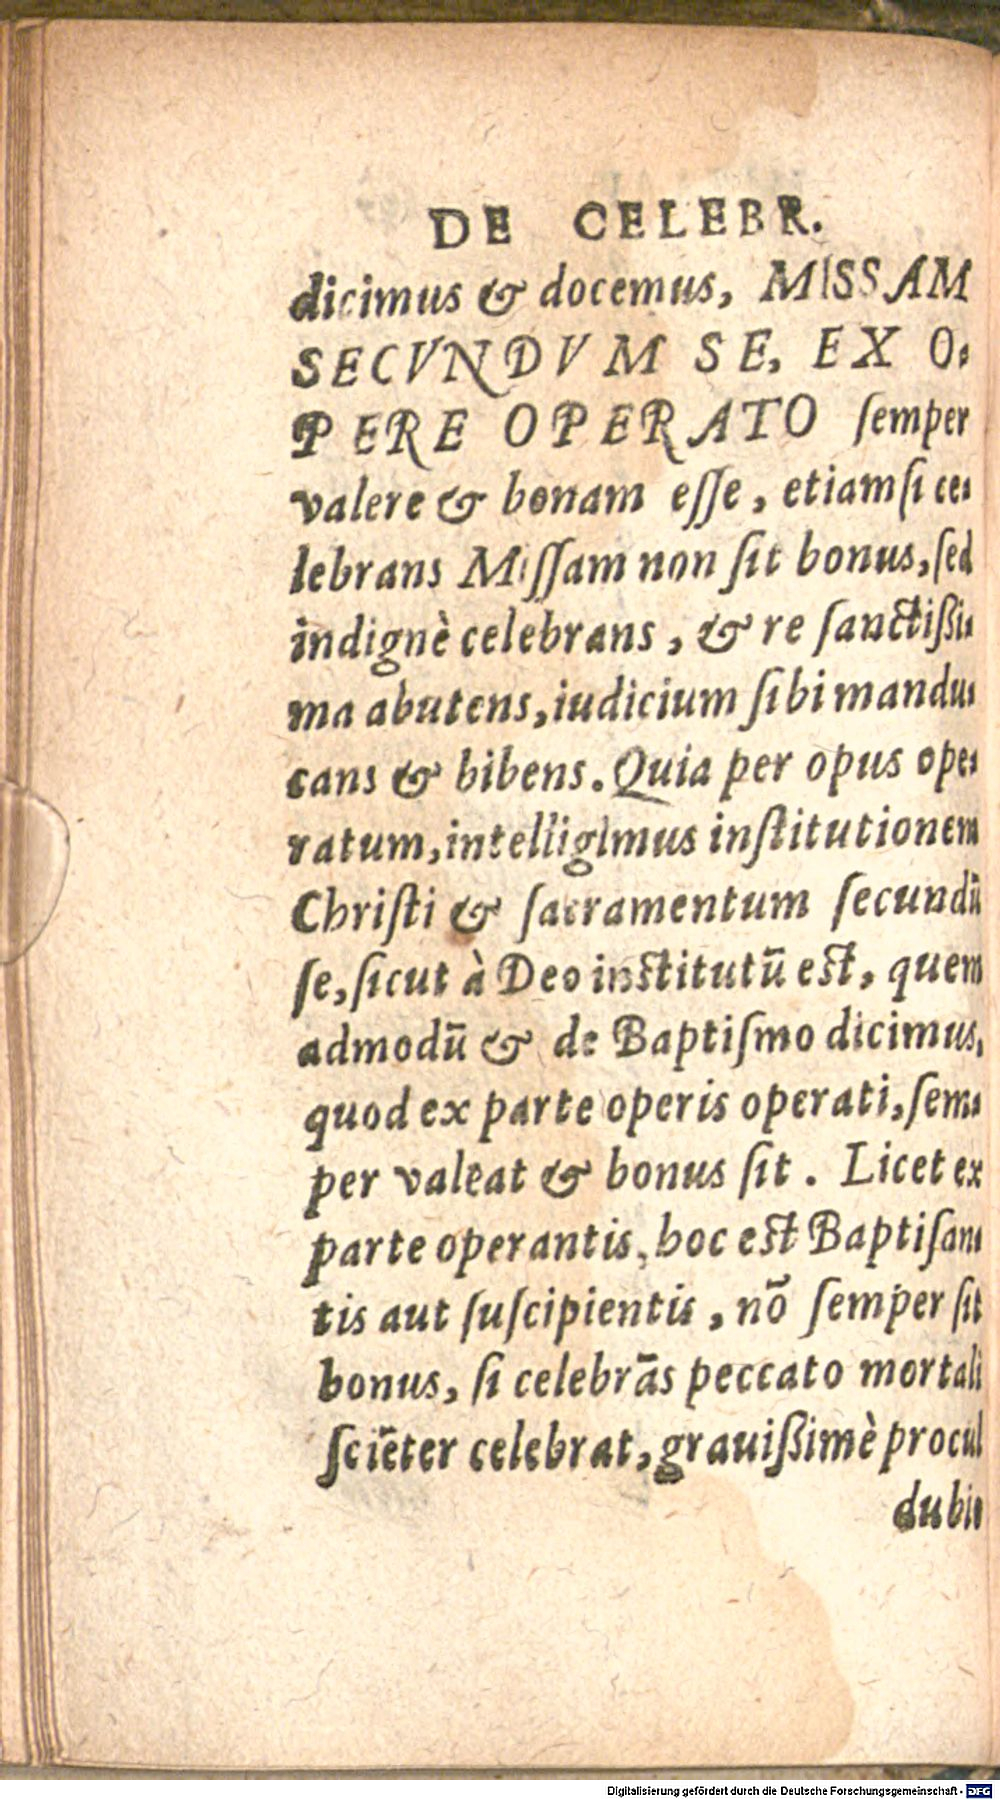 DE CELEBR.
dicimus & docemus, MISSAM
SECVNDVM SE, EX O-
PERE OPERATO ſemper
valere & bonam eſſe, etiamſi ce-
lebrans Miſſam non ſit bonus, ſed
indignè celebrans, & re ſanctißi-
ma abutens, iudicium ſibi mandu-
cans & bibens. Quia per opus ope-
ratum, intelligimus inſtitutionem
Chriſti & ſacramentum ſecundũ
ſe, ſicut à Deo inſtitutũ eſt, quem
admodũ & de Baptiſmo dicimus,
quod ex parte operis operati, ſem-
per valeat & bonus ſit. Licet ex
parte operantis, hoc eſt Baptiſan-
tis aut ſuſcipientis, nõ ſemper ſit
bonus, ſi celebrãs peccato mortali
ſciẽter celebrat, grauißimè procul
dubio
Digitalisierung gefördert durch die Deutsche Forschungsgemeinschaft - DFG